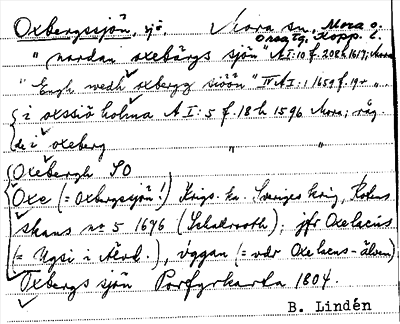 Oxbergssjön, sjö Mora sn, Mora o.
Orsa tg, Kopp. l.
" nordan oxebärgs sjön" A I:10 f. 208 h 1617; Mora
" Engh wedh oxbergz siöön" IV A I:1 1659 f. 19 "
i oxssiö holma A I:5 f. 18 h 1596 Mora; råg
de i oxeberg " "
Oxebergh SO
Oxe (= Oxbergssjön!) Krigs. ka. Sveriges krig, Kolns
skans nr 5 1676 ; jfr Oxelacus
(= Ugsi i Älvd.), Uggan (= vdr Oxelacus-älven)
Oxbergs sjön Porfyrkarta 1804.
B. Lindén